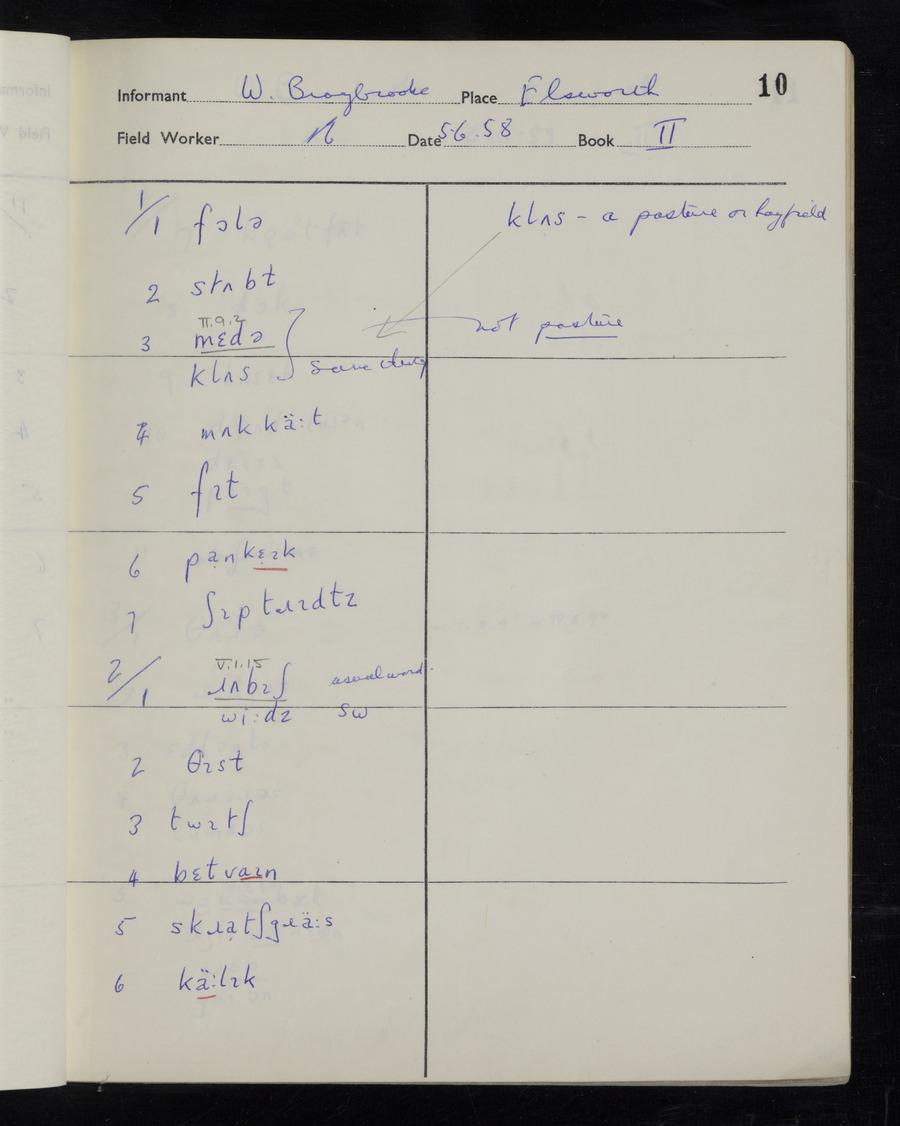 10
Informant W. Braybrooke Place Elsworth
Field Worker N Date 5.6.58 Book II
1/1 fɔlə
klʌs - a pasture or hayfield
2 stʌbt
II.9.2
3 mɛdə
not pasture
klʌs same thing
4 mʌkkä:t
5 fɪt
6 pa̜nkɛ̣ɪk
7 ʃɪptɹɪdtz
V.1.15
2/1 ɹʌbɪʃ usual word.
wi:dz SW
2 θɪst
3 twɪtʃ
4 bɛtvaɪn
5 skɹa̜tʃgɹä:s
6 kä:lɪk